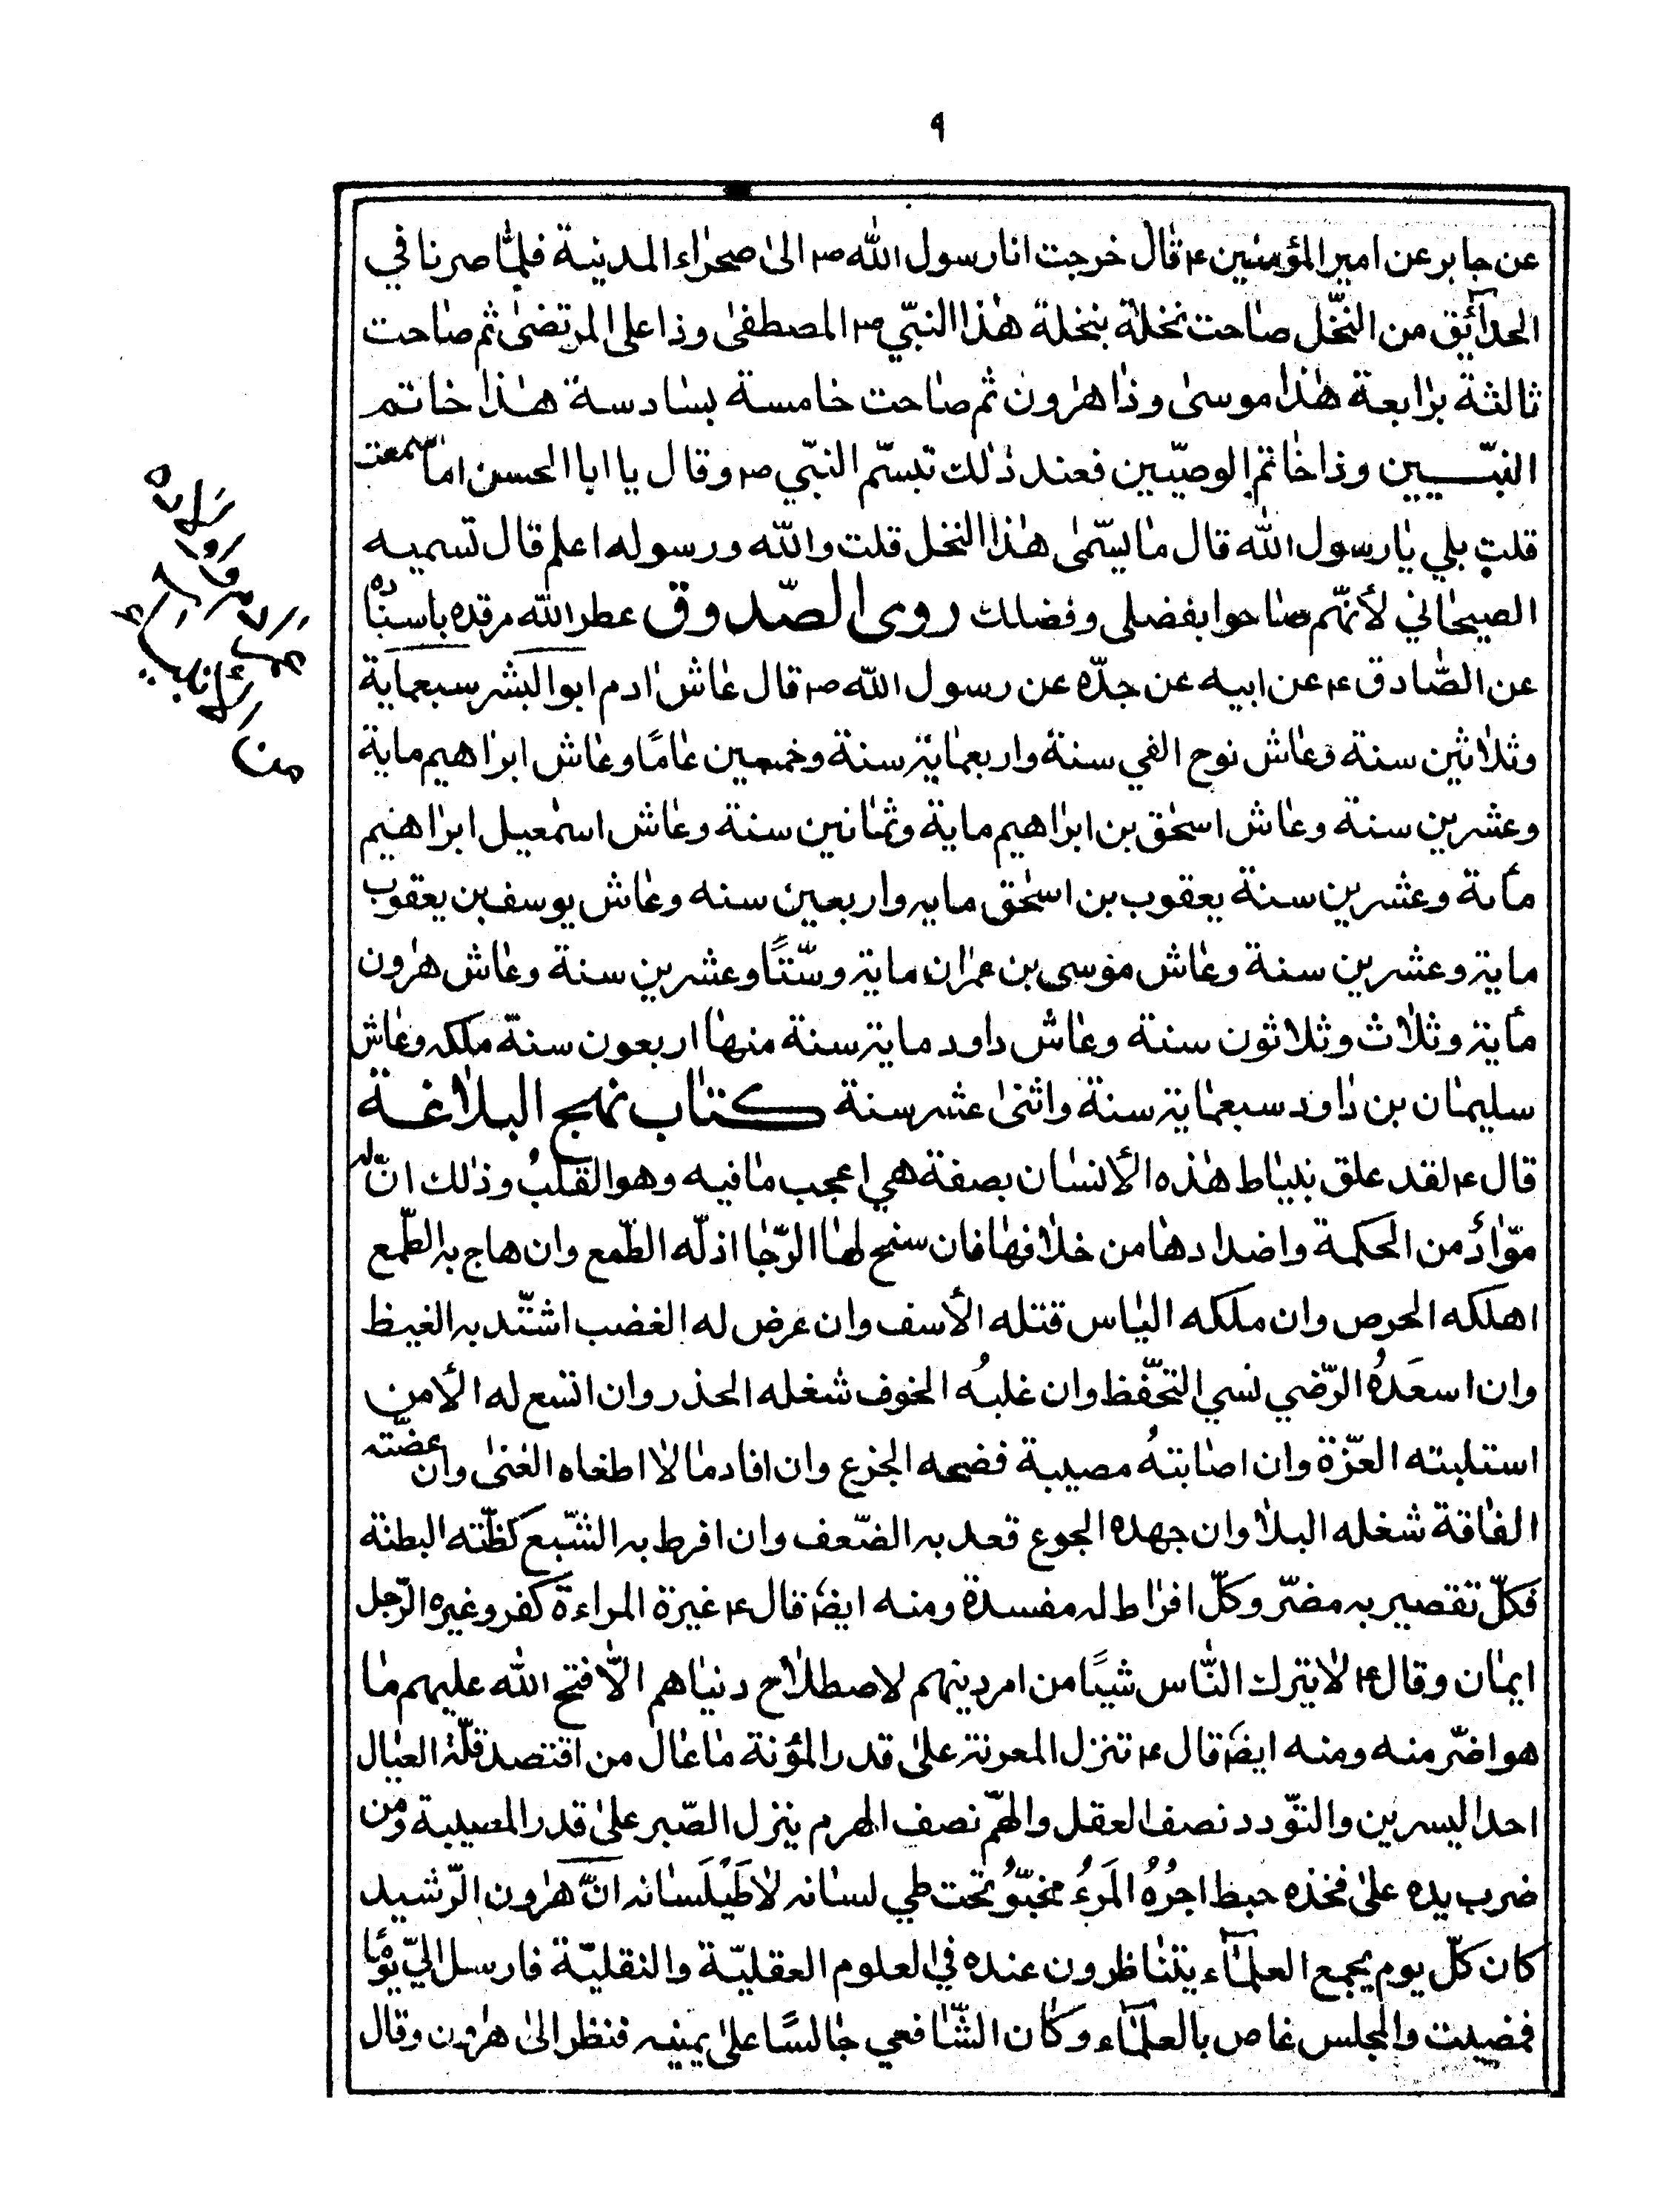 ٩
عن جابر عن امير المؤمنين ع قال خرجت انا رسول الله ص الى صحراء المدينة فلمّا صرنا في
الحدائق من النخّل صاحت نخلة بنخلة هذا النبّي ص المصطفى وذا على المرتضى ثم صاحت
ثالثة برابعة هذا موسى وذا هرون ثم صاحت خامسة بسادسة هذا خاتم
النبّيين وذا خاتم الوصيّين فعند ذلك تبسّم النبّي ص وقال يا ابا الحسن اما سمعت
قلت بلي يا رسول الله قال ما يسّمى هذا النخل قلت والله ورسوله اعلم قال تسميه
الصيحاني لأنهّم صاحوا بفضلى وفضلك روى الصّدوق عطر الله مرقده باسناده
عن الصّادق ع عن ابيه عن جدّه عن رسول الله ص قال عاش ادم ابو البشر سبعماية
وثلاثين سنة وعاش نوح الفي سنة واربعماية سنة وخمسين عامًا وعاش ابراهيم ماية
وعشرين سنة وعاش اسحق بن ابراهيم ماية وثمانين سنة وعاش اسمعيل ابراهيم
مأىة وعشرين سنة يعقوب بن اسحق مايه واربعين سنه وعاش يوسف بن يعقوب
ماية وعشرين سنة وعاش موسى بن عمران ماية وسّتًا وعشرين سنة وعاش هرون
مأية وثلاث وثلاثون سنة وعاش داود ماية سنة منها اربعون سنة ملكه وعاش
سليمان بن داود سبعماية سنة واثنى عشر سنة كتاب نهج البلاغة
قال ع لقد علق بنياط هذه الأنسان بصفة هي اعجب ما فيه وهو القلبُ وذلك انّ له
موّادُ من الحكمة واضدادها من خلافها فان سنح لها الرّجا اذلّه الطّمع وان هاج به الطّمع
اهلكه الحرص وان ملكه الياس قتله الأسف وان عرض له الغضب اشتّد به الغيظ
وان اسعَدهُ الرّضي نسي التحّفظ وان غلبهُ الخوف شغله الحذر وان اتسع له الأمن
استلبته العزّة وان اصابتهُ مصيبة فضحه الجزع وان افاد مالا اطغاه الغنى وان عضّته
الفاقة شغله البلا وان جهده الجوع قعد به الضّعف وان افرط به الشّبع كظّته البطنة
فكلّ تقصير به مضّر وكلّ افراط له مفسدة ومنه ايضا قال ع غيرة المراءة كفر وغيره الرّجل
ايمان وقال ع لا يترك النّاس شيًا من امر دينهم لاصطلاح دنياهم الاّ فتح الله عليهم ما
هو اضّر منه ومنه ايضا قال ع تنزل المعونة على قدر المؤنة ما عال من اقتصد قلّة العيال
احد اليسرين والتوّدد نصف العقل والهمّ نصف الهرم ينزل الصّبر على قدر المصيبة ومن
ضرب يده على فخذه حبط اجرُهُ المَرءُ مخبّوُ تحت طي لسانه لا طَيْلَسانه انّ هرون الرّشيد
كان كلّ يوم يجمع العلمآء يتناظرون عنده في العلوم العقليّة والنقليّة فارسل اليّ يومًا
فمضيت والمجلس غاص بالعلمآء وكان الشّافعي جالسًا على يمينه فنظر الى هرون وقال
من الأنبياء